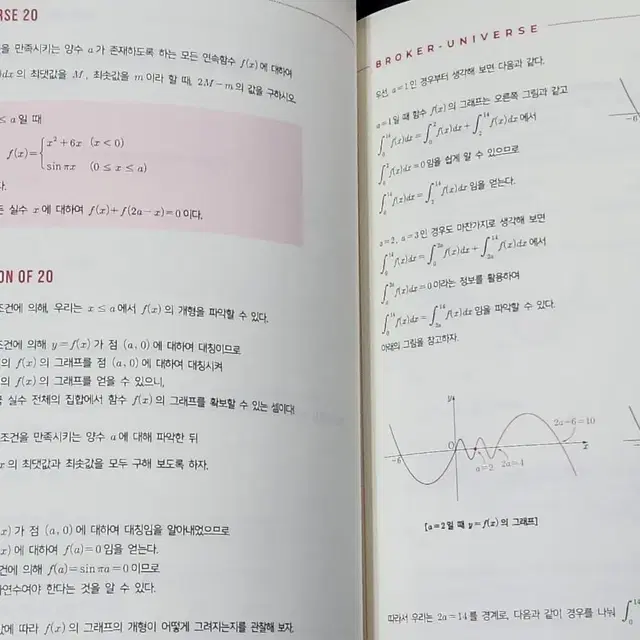 RSE 20
을 만족시키는 양수 a가 존재하도록 하는 모든 연속함수 f(x)에 대하여
dx의 최댓값을 M, 최솟값을 m이라 할 때, 2M-m의 값을 구하시오.
≤ a일 때
f(x)={x²+6x (x<0)
sin πx (0≤x≤a)
다.
든 실수 x에 대하여 f(x)+f(2a-x)=0이다.
ON OF 20
조건에 의해, 우리는 x≤a에서 f(x)의 개형을 파악할 수 있다.
조건에 의해 y=f(x)가 점 (a, 0)에 대하여 대칭이므로
의 f(x)의 그래프를 점 (a, 0)에 대하여 대칭시켜
의 f(x)의 그래프를 얻을 수 있으니,
실수 전체의 집합에서 함수 f(x)의 그래프를 확보할 수 있는 셈이다.
조건을 만족시키는 양수 a에 대해 파악한 뒤
x의 최댓값과 최솟값을 모두 구해 보도록 하자.
x)가 점 (a, 0)에 대하여 대칭임을 알아내었으므로
x)에 대하여 f(a)=0임을 얻는다.
건에 의해 f(a)=sin πa=0이므로
자연수여야 한다는 것을 알 수 있다.
값에 따라 f(x)의 그래프의 개형이 어떻게 그려지는지를 관찰해 보자.
BROKER-UNIVERSE
우선, a=1인 경우부터 생각해 보면 다음과 같다.
a=1일 때 함수 f(x)의 그래프는 오른쪽 그림과 같고
∫₀¹⁴f(x)dx=∫₀²f(x)dx+∫₂¹⁴f(x)dx에서
∫₀²f(x)dx=0임을 쉽게 알 수 있으므로
∫₀¹⁴f(x)dx=∫₂¹⁴f(x)dx임을 얻는다.
a=2, a=3인 경우도 마찬가지로 생각해 보면
∫₀¹⁴f(x)dx=∫₀²ᵃf(x)dx+∫₂ₐ¹⁴f(x)dx에서
∫₀²ᵃf(x)dx=0이라는 정보를 활용하여
∫₀¹⁴f(x)dx=∫₂ₐ¹⁴f(x)dx임을 파악할 수 있다.
아래의 그림을 참고하자.
y
2a+6=10
-6
O
x
-6
a=2
2a=4
[a=2일 때 y=f(x)의 그래프]
따라서 우리는 2a=14를 경계로, 다음과 같이 경우를 나눠 ∫₀¹⁴